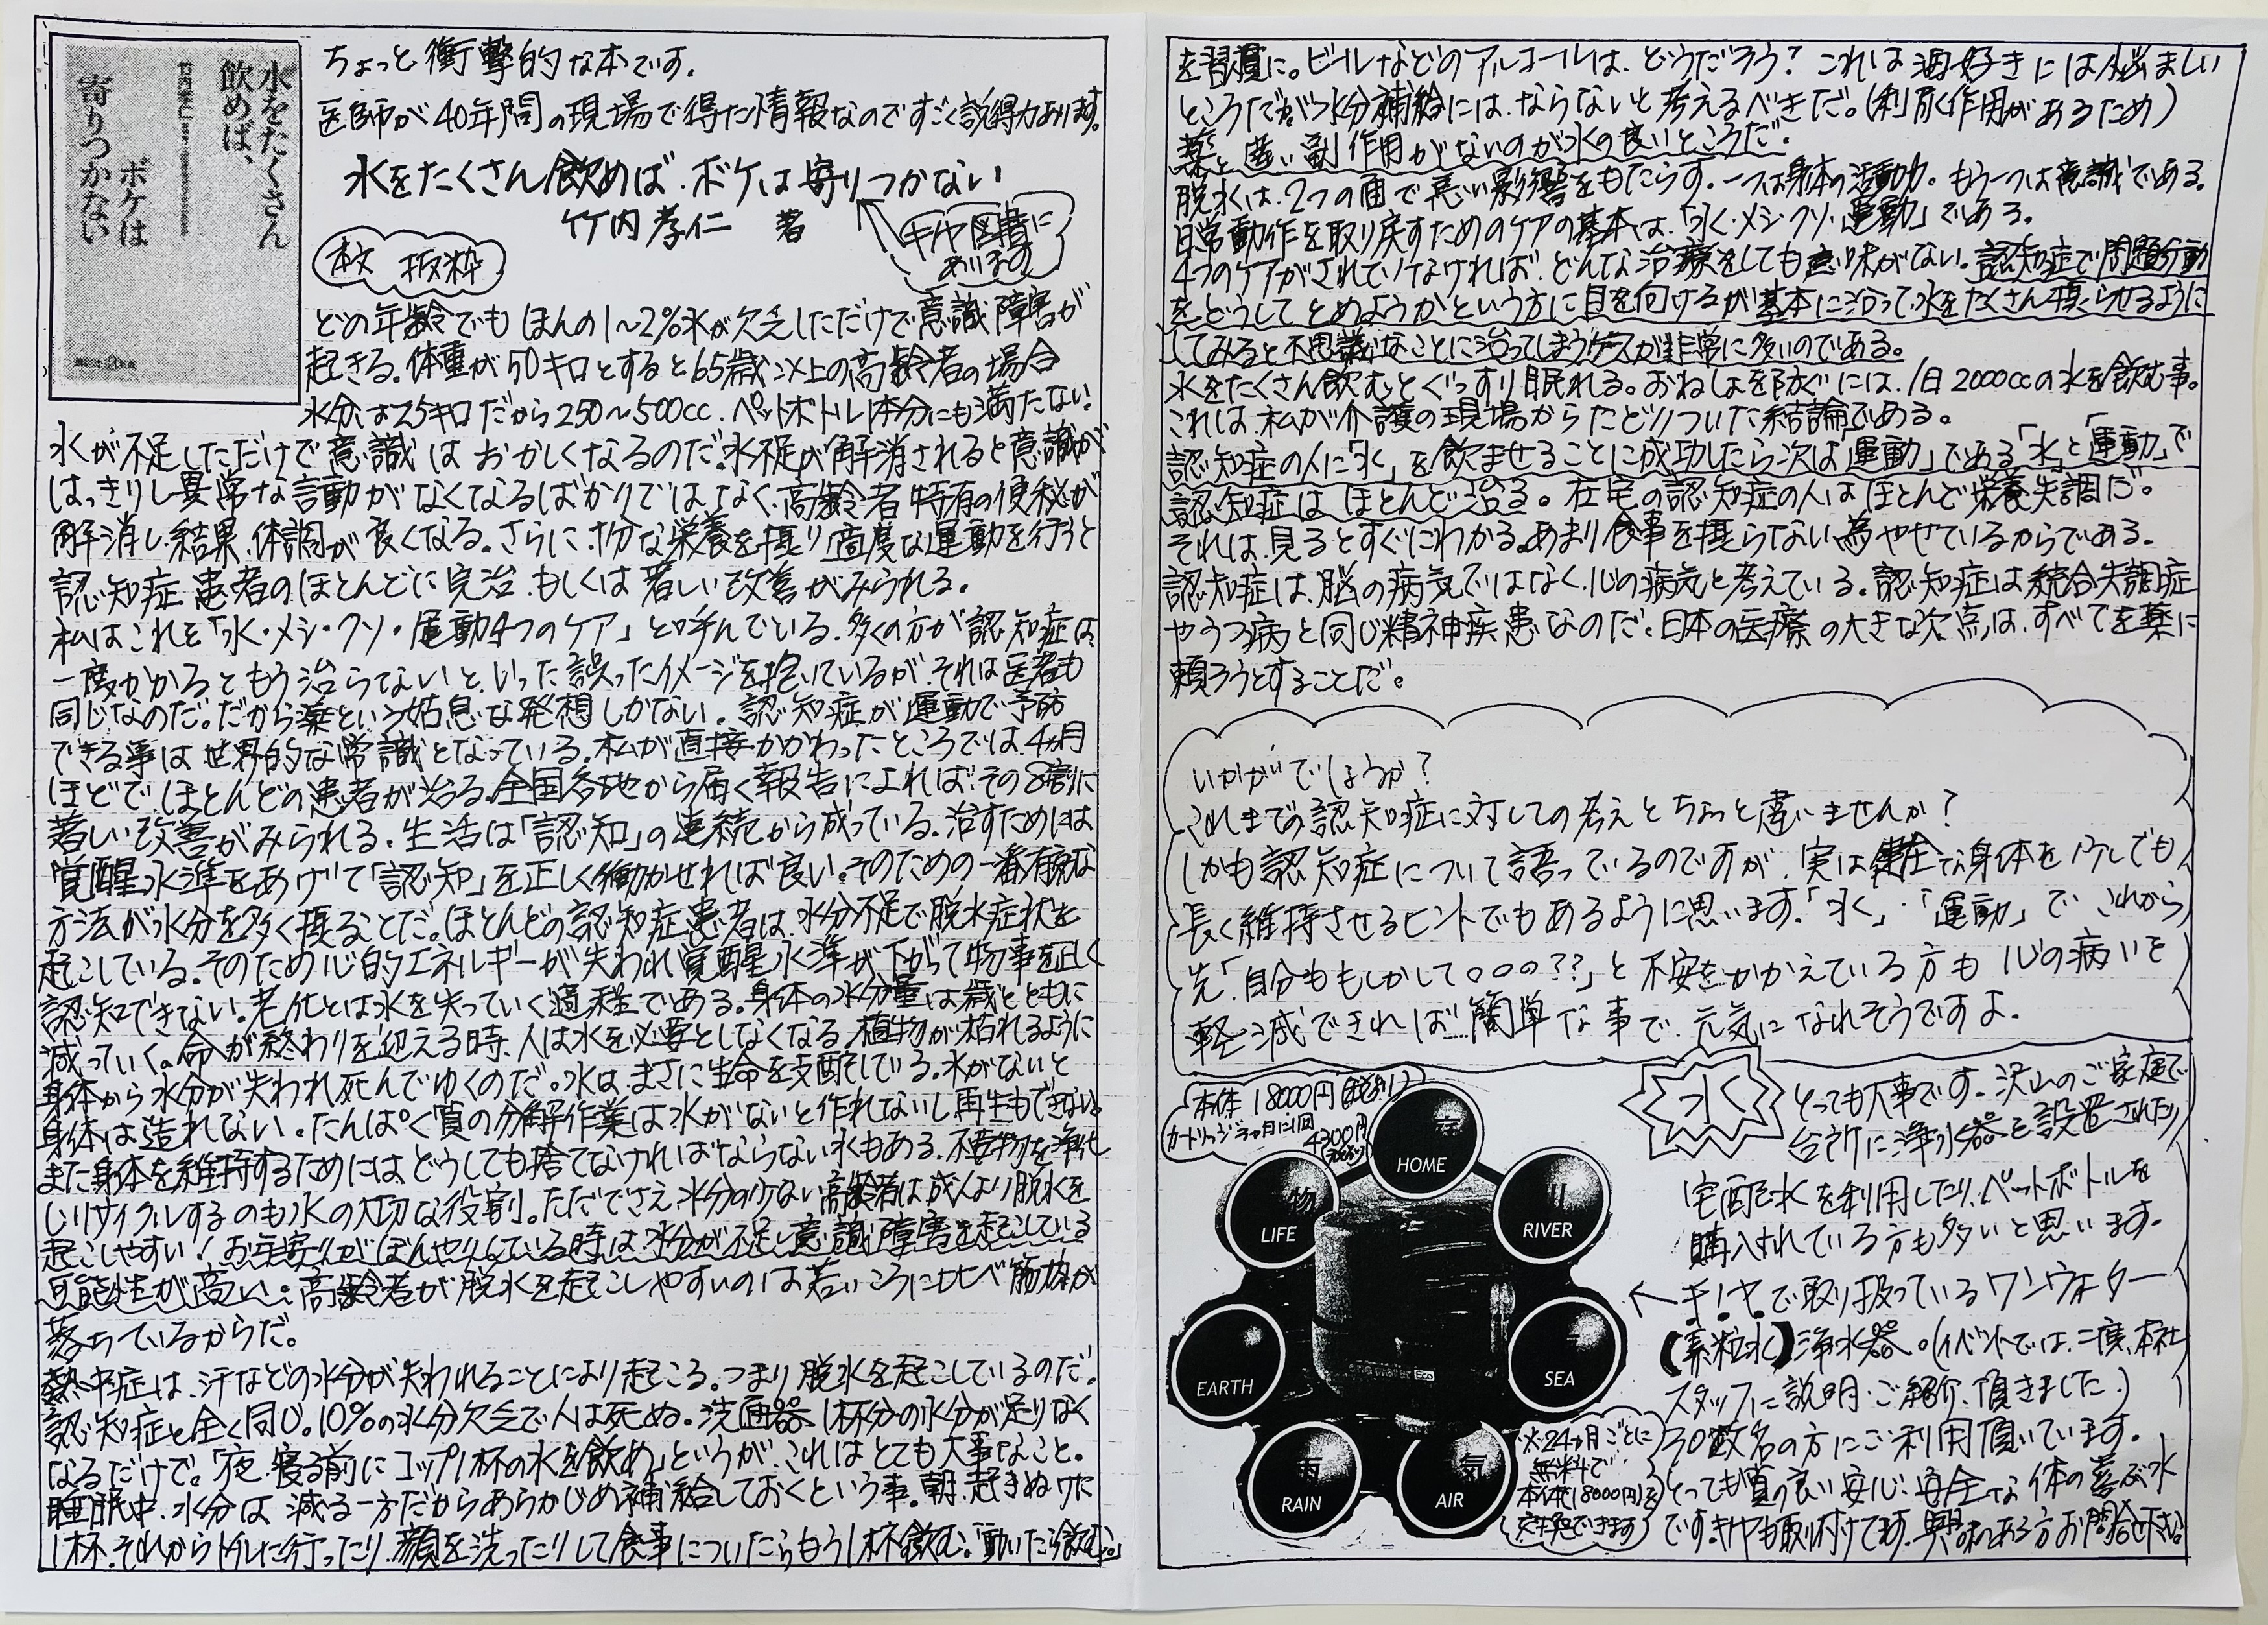 水をたくさん
飲めば、
ボケは
寄りつかない
竹内孝仁
ちょっと衝撃的な本です.
医師が40年間の現場で得た情報なのですごく説得力あります.
水をたくさん飲めば.ボケは寄りつかない
竹内孝仁 著
キヤ図書に
あります
本文 抜粋
どの年齢でもほんの1～2%水が欠乏しただけで意識障害が
起きる.体重が50キロとすると65歳以上の高齢者の場合
水分は25キロだから250～500cc.ペットボトル1本分にも満たない!
水が不足しただけで意識はおかしくなるのだ.水不足が解消されると意識が
はっきりし異常な言動がなくなるばかりではなく、高齢者特有の便秘が
解消し結果.体調が良くなる.さらに.十分な栄養を摂り適度な運動を行うと
認知症患者のほとんどに完治.もしくは著しい改善がみられる.
私はこれを「水・メシ・クソ・運動4つのケア」と呼んでいる.多くの方が認知症は、
一度かかるともう治らないと、いった誤ったイメージを抱いているが、それは医者も
同じなのだ。だから薬という姑息な発想しかない.認知症が運動で予防
できる事は世界的な常識となっている.私が直接かかわったところでは.4ヶ月
ほどで.ほとんどの患者が治る.全国各地から届く報告によれば.その8割に
著しい改善がみられる.生活は「認知」の連続から成っている.治すためには
覚醒水準をあげて「認知」を正しく働かせれば良い.そのための一番有効な
方法が水分を多く摂ることだ.ほとんどの認知症患者は.水分不足で脱水症状を
起こしている.そのため心的エネルギーが失われ覚醒水準が下がって物事を正しく
認知できない.老化とは水を失っていく過程である.身体の水分量は歳とともに
減っていく。命が終わりを迎える時、人は水を必要としなくなる.植物が枯れるように
身体から水分が失われ死んでゆくのだ。水は.まさに生命を支配している.水がないと
身体は造れない.たんぱく質の分解作業は水がないと作れないし再生もできない。
また身体を維持するためには、どうしても捨てなければならない水もある.不要物を浄化
しリサイクルするのも水の大切な役割.ただでさえ水分の少ない高齢者は成人より脱水を
起こしやすい!お年寄りがぼんやりしている時は.水分が不足し意識障害を起こしている
可能性が高い.高齢者が脱水を起こしやすいのは若いころに比べ筋肉が
落ちているからだ。
熱中症は.汗などの水分が失われることにより起こる.つまり脱水を起こしているのだ.
認知症と全く同じ.10%の水分欠乏で人は死ぬ.洗面器1杯分の水分が足りなく
なるだけで.「夜.寝る前にコップ1杯の水を飲め」というが、これはとても大事なこと.
睡眠中.水分は減る一方だからあらかじめ補給しておくという事.朝.起きぬけに
1杯.それからトイレに行ったり.顔を洗ったりして食事についたらもう1杯飲む.「動いたら飲む。」
を習慣に。ビールなどのアルコールは.どうだろう?これは酒好きには悩ましい
ところだが水分補給には.ならないと考えるべきだ.(利尿作用があるため)
薬と違い副作用がないのが水の良いところだ.
脱水は.2つの面で悪い影響をもたらす.一つは身体の活動力.もう一つは意識である.
日常動作を取り戻すためのケアの基本は.「水・メシ・クソ・運動」である.
4つのケアがされていなければ.どんな治療をしても意味がない.認知症で問題行動
をどうしてとめようかという方に目を向けるが基本に沿って水をたくさん摂らせるように
してみると不思議なことに治ってしまうケースが非常に多いのである.
水をたくさん飲むとぐっすり眠れる.おねしょを防ぐには.1日2000ccの水を飲む事.
これは.私が介護の現場からたどりついた結論である.
認知症の人に「水」を飲ませることに成功したら次は「運動」である「水」と「運動」で
認知症はほとんど治る.在宅の認知症の人はほとんど栄養失調だ.
それは.見るとすぐにわかる.あまり食事を摂らない為やせているからである.
認知症は.脳の病気ではなく.心の病気と考えている.認知症は統合失調症
やうつ病と同じ精神疾患なのだ.日本の医療の大きな欠点は.すべてを薬に
頼ろうとすることだ.
いかがでしょうか?
これまでの認知症に対しての考えとちょっと違いませんか?
しかも認知症について語っているのですが.実は健全な身体を少しでも
長く維持させるヒントでもあるように思います.「水」.「運動」で これから
先.「自分ももしかして○○の??」と不安をかかえている方も心の病いを
軽減できれば…簡単な事で.元気になれそうですよ.
水
とっても大事です.沢山のご家庭で
台所に浄水器を設置されたり
宅配水を利用したり.ペットボトルを
購入されている方も多いと思います.
←キ!ヤ.で取り扱っているワンウォーター
(素粒水)浄水器.(イベントでは.二度.本社
スタッフに説明.ご紹介.頂きました.)
30数名の方にご利用頂いています.
とっても質の良い安心.安全な体の喜ぶ水
です.キヤも取り付けてます.興味のある方お問合せ下さい
本体18000円(税込)
カートリッジ 1回
4300円
HOME
物
LIFE
川
RIVER
EARTH
SEA
雨
RAIN
気
AIR
one water Eco
※24ヶ月ごとに
無料で
本体(18000円)を
交換できます